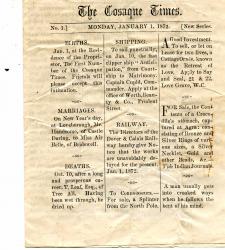 The Cosaque Times.
No. 1.] MONDAY, JANUARY 1, 1872. [New Series.
BIRTHS.
Jan. 1, at the Residence of the Proprietor, The First Number of the Cosaque Times. Friends will accept this intimation.
MARRIAGES.
On New Year's day, at Loveborough, Mr. Handsome, of Castle Daring, to Miss Ally Belle, of Bridewell.
DEATHS.
Oct. 10, after a long and prosperous career, T. Leaf, Esq., of Tree Hill. Having been wet through, he dried up.
SHIPPING.
To sail punctually, on Jan. 10, the fast clipper ship
from Courtship to Matrimony. Captain Cupid, Commander. Apply at the office of Worth, Beauty & Co., Prudent Street.
RAILWAY.
The Directors of the Dover & Calais Railway hereby give Notice that the works are unavoidably deferred for the present.
Jan. 1, 1872.
To Connoisseurs.—For sale, a Splinter from the North Pole.
A Good Investment. To sell, or let on lease for two lives, a Cottage Ornée, known as the Retreat of Love. Apply to Say and Seal, 21 & 22, Love Grove, W.C.
FOR Sale, the Contents of a Cosaque steamer, captured at Agra: consisting of Bronze and Silver Rings of various sizes, a Silver Necklace, Gold and other Beads, &c.
Indian Journal.
A man usually gets into crooked ways when he follows the bent of his mind.